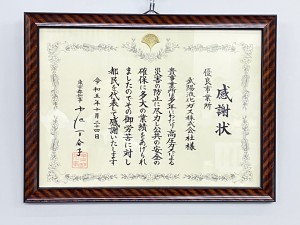 感謝状
優良事業所
武陽液化ガス株式会社様
貴事業所は多年にわたり高圧ガスによる
災害の防止に尽力し公共の安全の
確保に多大の業績をあげられ
ましたのでその御労苦に対し
都民を代表して感謝いたします
令和五年十月二十四日
東京都知事 小池百合子